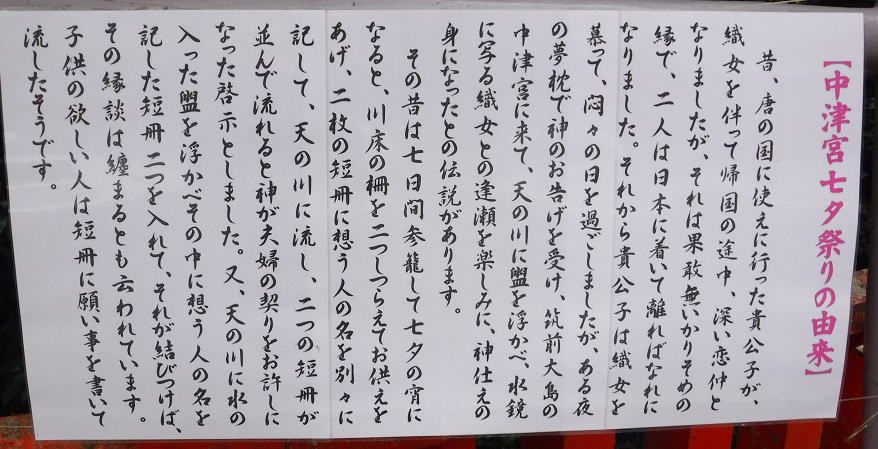 【中津宮七夕祭りの由来】
昔、唐の国に使えに行った貴公子が、
織女を伴って帰国の途中、深い恋仲と
なりましたが、それは果敢無いかりそめの
縁で、二人は日本に着いて離ればなれに
なりました。それから貴公子は織女を
慕って、悶々の日を過ごしましたが、ある夜
の夢枕で神のお告げを受け、筑前大島の
中津宮に来て、天の川に盥を浮かべ、水鏡
に写る織女との逢瀬を楽しみに、神仕えの
身になったとの伝説があります。
その昔は七日間参籠して七夕の宵に
なると、川床の柵を二つしつらえてお供えを
あげ、二枚の短冊に想う人の名を別々に
記して、天の川に流し、二つの短冊が
並んで流れると神が夫婦の契りをお許しに
なった啓示としました。又、天の川に水の
入った盥を浮かべその中に想う人の名を
記した短冊二つを入れて、それが結びつけば、
その縁談は纏まるとも云われています。
子供の欲しい人は短冊に願い事を書いて
流したそうです。